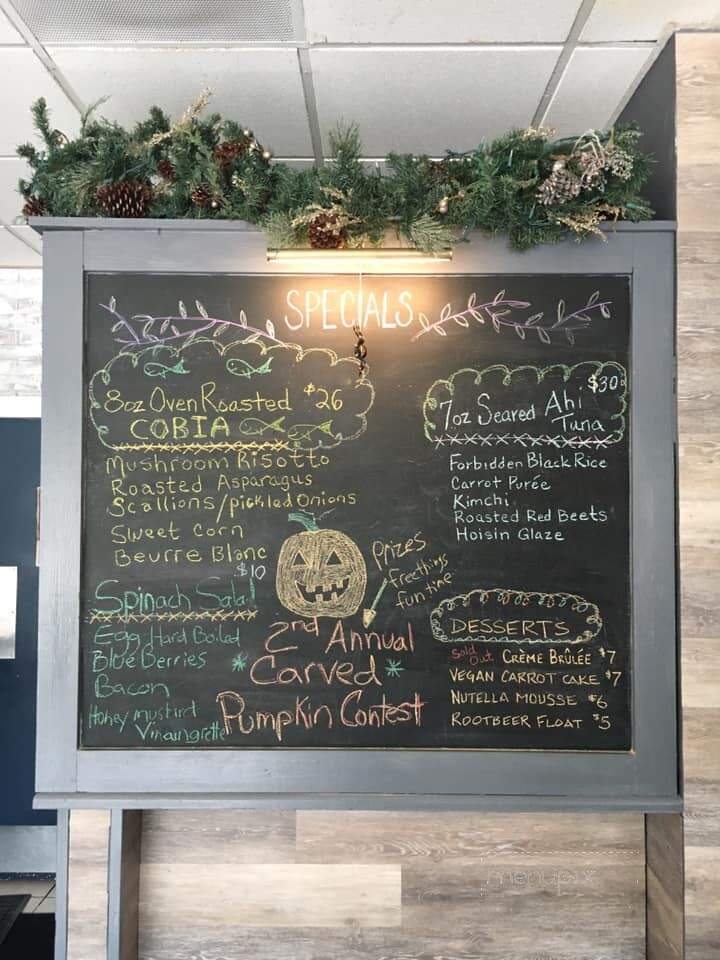 SPECIALS
8oz Oven Roasted $26
COBIA
Mushroom Risotto
Roasted Asparagus
Scallions/pickled Onions
Sweet Corn
Beurre Blanc
$10
Spinach Salad
Egg Hard Boiled
Blue Berries
Bacon
Honey mustird
Vinaingrette
Prizes
Free things
fun time
2nd Annual
Carved
Pumpkin Contest
$30
7oz Seared Ahi
Tuna
Forbidden Black Rice
Carrot Purée
Kimchi
Roasted Red Beets
Hoisin Glaze
DESSERTS
Sold Out CRÈME BRÛLÉE $7
VEGAN CARROT CAKE $7
NUTELLA MOUSSE $6
ROOTBEER FLOAT $5
menupix